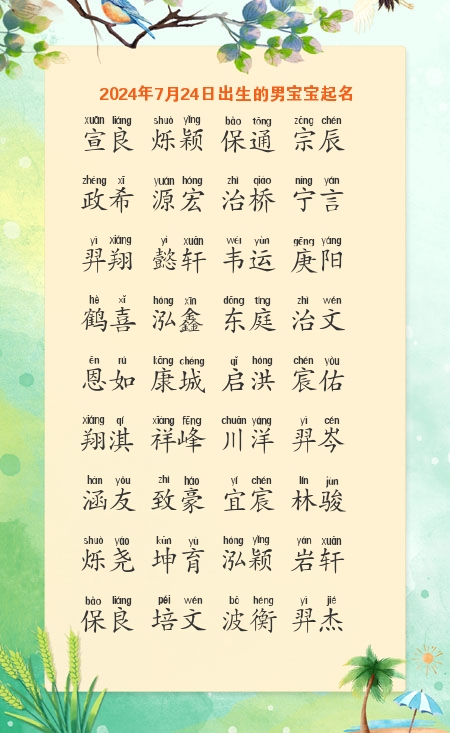 2024年7月24日出生的男宝宝起名
xuān liáng shuò yǐng bǎo tōng zōng chén
宣良 烁颖 保通 宗辰
zhèng xī yuán hóng zhì qiáo níng yán
政希 源宏 治桥 宁言
yì xiáng yì xuān wéi yùn gēng yáng
羿翔 懿轩 韦运 庚阳
hè xǐ hóng xīn dōng tíng zhì wén
鹤喜 泓鑫 东庭 治文
ēn rú kāng chéng qǐ hóng chén yòu
恩如 康城 启洪 宸佑
xiáng qí xiáng fēng chuān yáng yì cén
翔淇 祥峰 川洋 羿岑
hán yǒu zhì háo yí chén lín jùn
涵友 致豪 宜宸 林骏
shuò yáo kūn yù hóng yǐng yán xuān
烁尧 坤育 泓颖 岩轩
bǎo liáng péi wén bō héng yì jié
保良 培文 波衡 羿杰